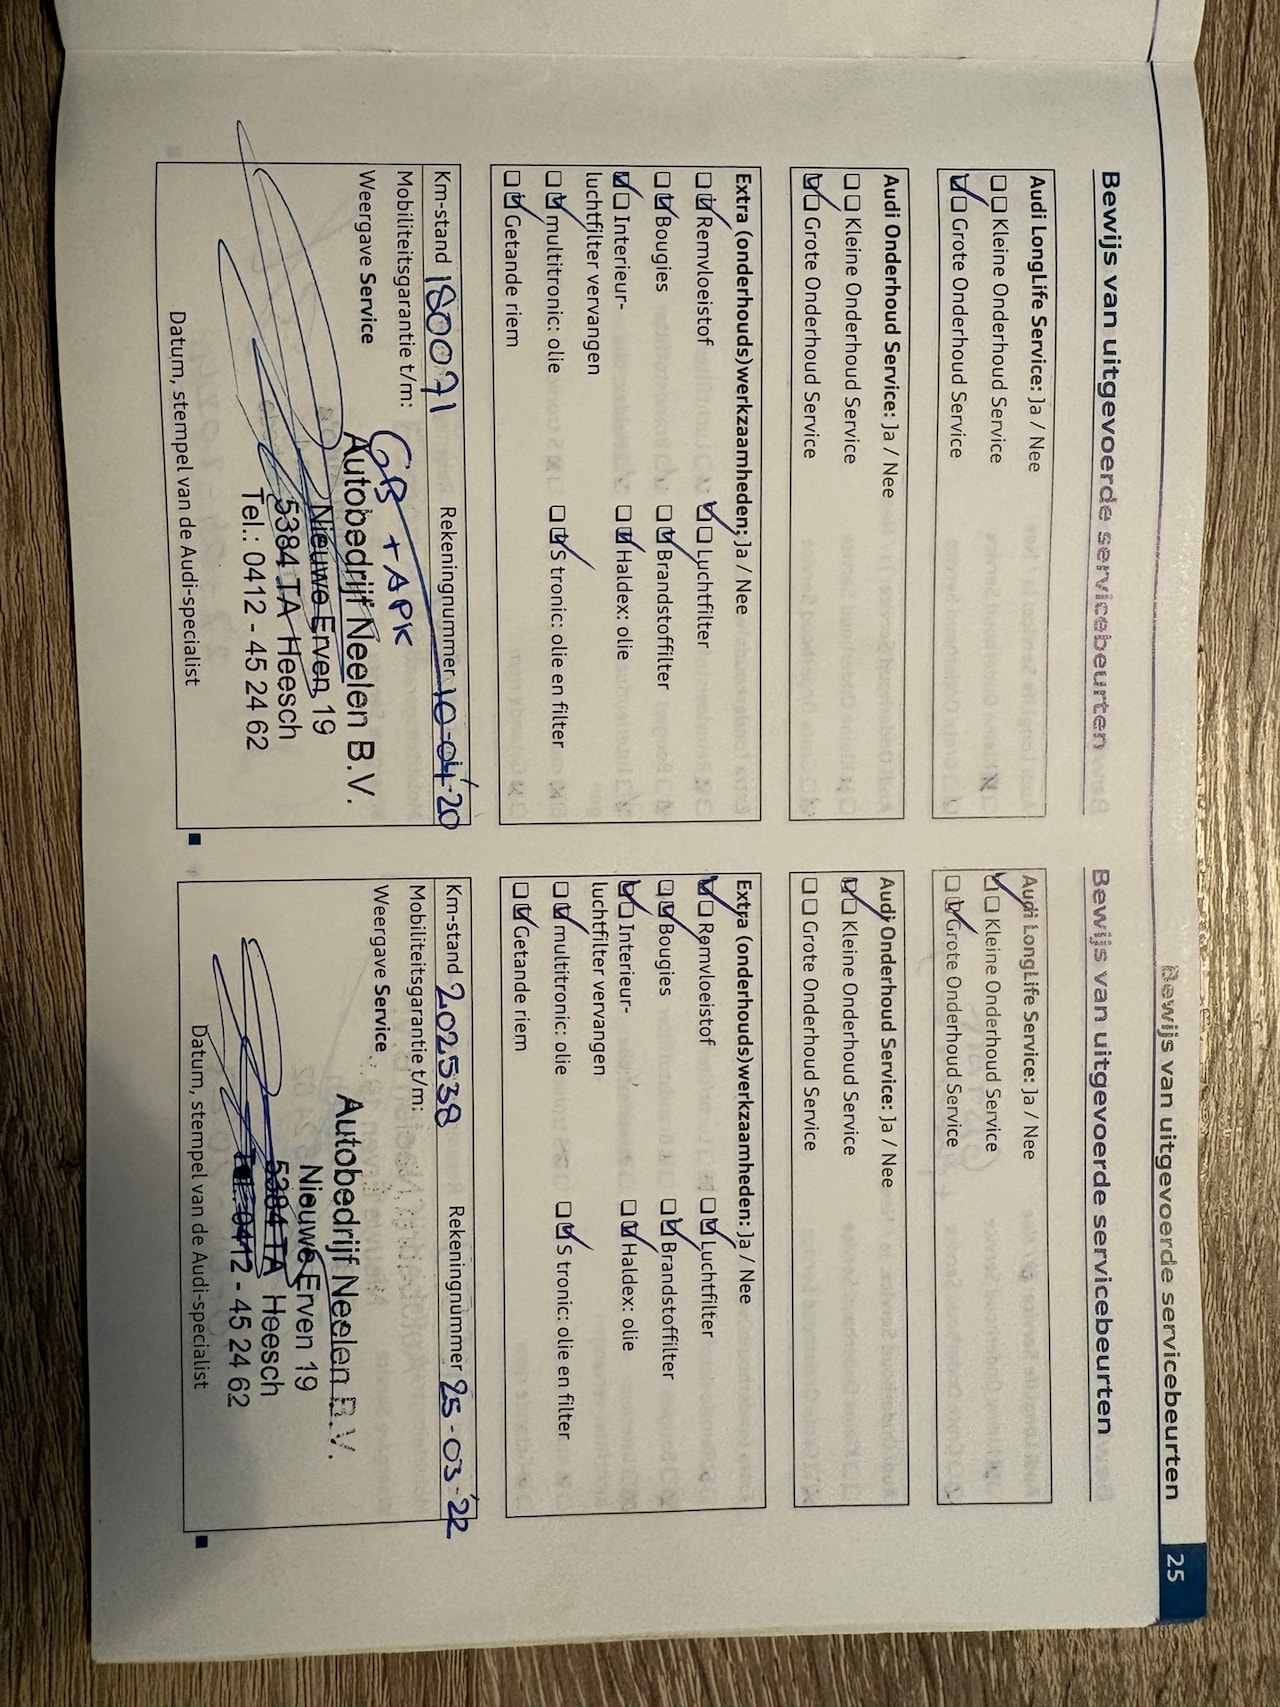 Bewijs van uitgevoerde servicebeurten
25
Bewijs van uitgevoerde servicebeurten
Audi LongLife Service: Ja / Nee
Kleine Onderhoud Service
Grote Onderhoud Service
Audi Onderhoud Service: Ja / Nee
Kleine Onderhoud Service
Grote Onderhoud Service
Extra (onderhouds)werkzaamheden: Ja / Nee
Remvloeistof
Luchtfilter
Bougies
Brandstoffilter
Interieur-
luchtfilter vervangen
Haldex: olie
multitronic: olie
S tronic: olie en filter
Getande riem
Km-stand 180071
Rekeningnummer 10-04-'20
Mobiliteitsgarantie t/m:
GB + APK
Weergave Service
Autobedrijf Neelen B.V.
Nieuwe Erven 19
5384 TA Heesch
Tel.: 0412 - 45 24 62
Datum, stempel van de Audi-specialist
Bewijs van uitgevoerde servicebeurten
Audi LongLife Service: Ja / Nee
Kleine Onderhoud Service
Grote Onderhoud Service
Audi Onderhoud Service: Ja / Nee
Kleine Onderhoud Service
Grote Onderhoud Service
Extra (onderhouds)werkzaamheden: Ja / Nee
Remvloeistof
Luchtfilter
Bougies
Brandstoffilter
Interieur-
luchtfilter vervangen
Haldex: olie
multitronic: olie
S tronic: olie en filter
Getande riem
Km-stand 202538
Rekeningnummer 25-03-'22
Mobiliteitsgarantie t/m:
Weergave Service
Autobedrijf Neelen B.V.
Nieuwe Erven 19
5384 TA Heesch
Tel.: 0412 - 45 24 62
Datum, stempel van de Audi-specialist